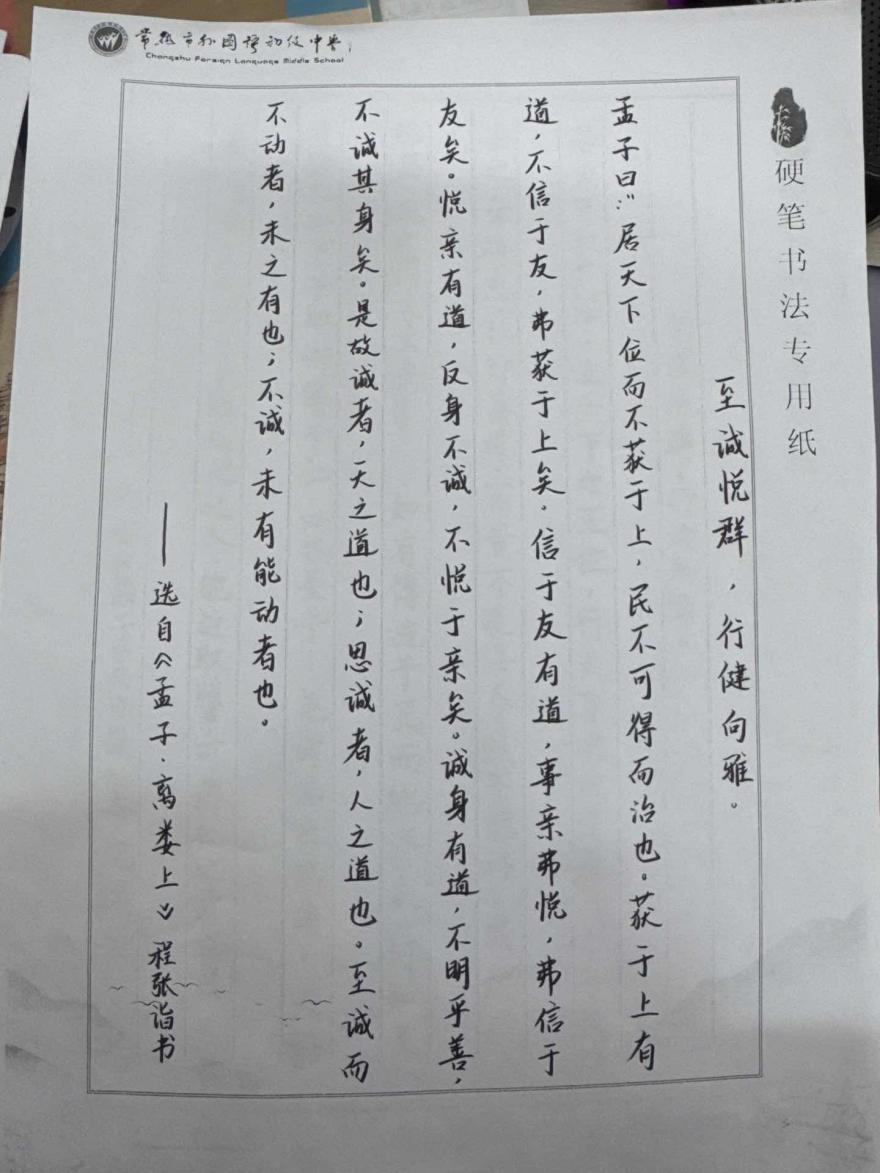 常熟市外国语初级中学
Changshu Foreign Language Middle School
硬笔书法专用纸
至诚悦群，行健向雅。
孟子曰：“居天下位而不获于上，民不可得而治也。获于上有
道，不信于友，弗获于上矣。信于友有道，事亲弗悦，弗信于
友矣。悦亲有道，反身不诚，不悦于亲矣。诚身有道，不明乎善，
不诚其身矣。是故诚者，天之道也；思诚者，人之道也。至诚而
不动者，未之有也；不诚，未有能动者也。
——选自《孟子·离娄上》 程张诣书